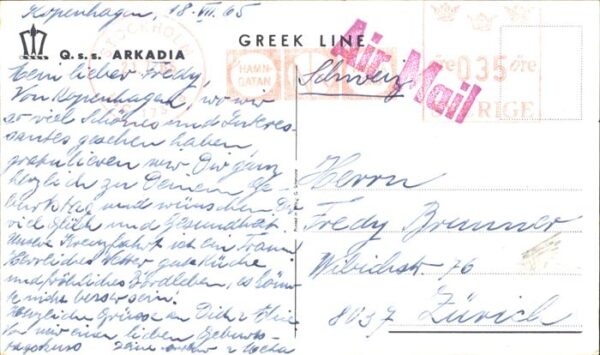 Kopenhagen, 18. VII. 65
Q.s.s. ARKADIA
GREEK LINE
Mein lieber Fredy,
Von Kopenhagen, wo wir
so viel Schönes und Interes-
santes gesehen haben,
gratulieren wir Dir ganz
herzlich zu Deinem Ge-
burtstag und wünschen Dir
viel Glück und Gesundheit
Unsere Kreuzfahrt ist ein Traum
Herrliches Wetter gute Küche
und fröhliches Bordleben, es könn-
te nicht besser sein.
Herzliche Grüsse an Dich &
für Dich einen lieben Geburts-
tagskuss
STOCKHOLM
HAMN-
GATAN
öre 035 öre
SVERIGE
Air Mail
Schweiz
Herrn
Fredy Brunner
Wibichstr. 76
8037 Zürich